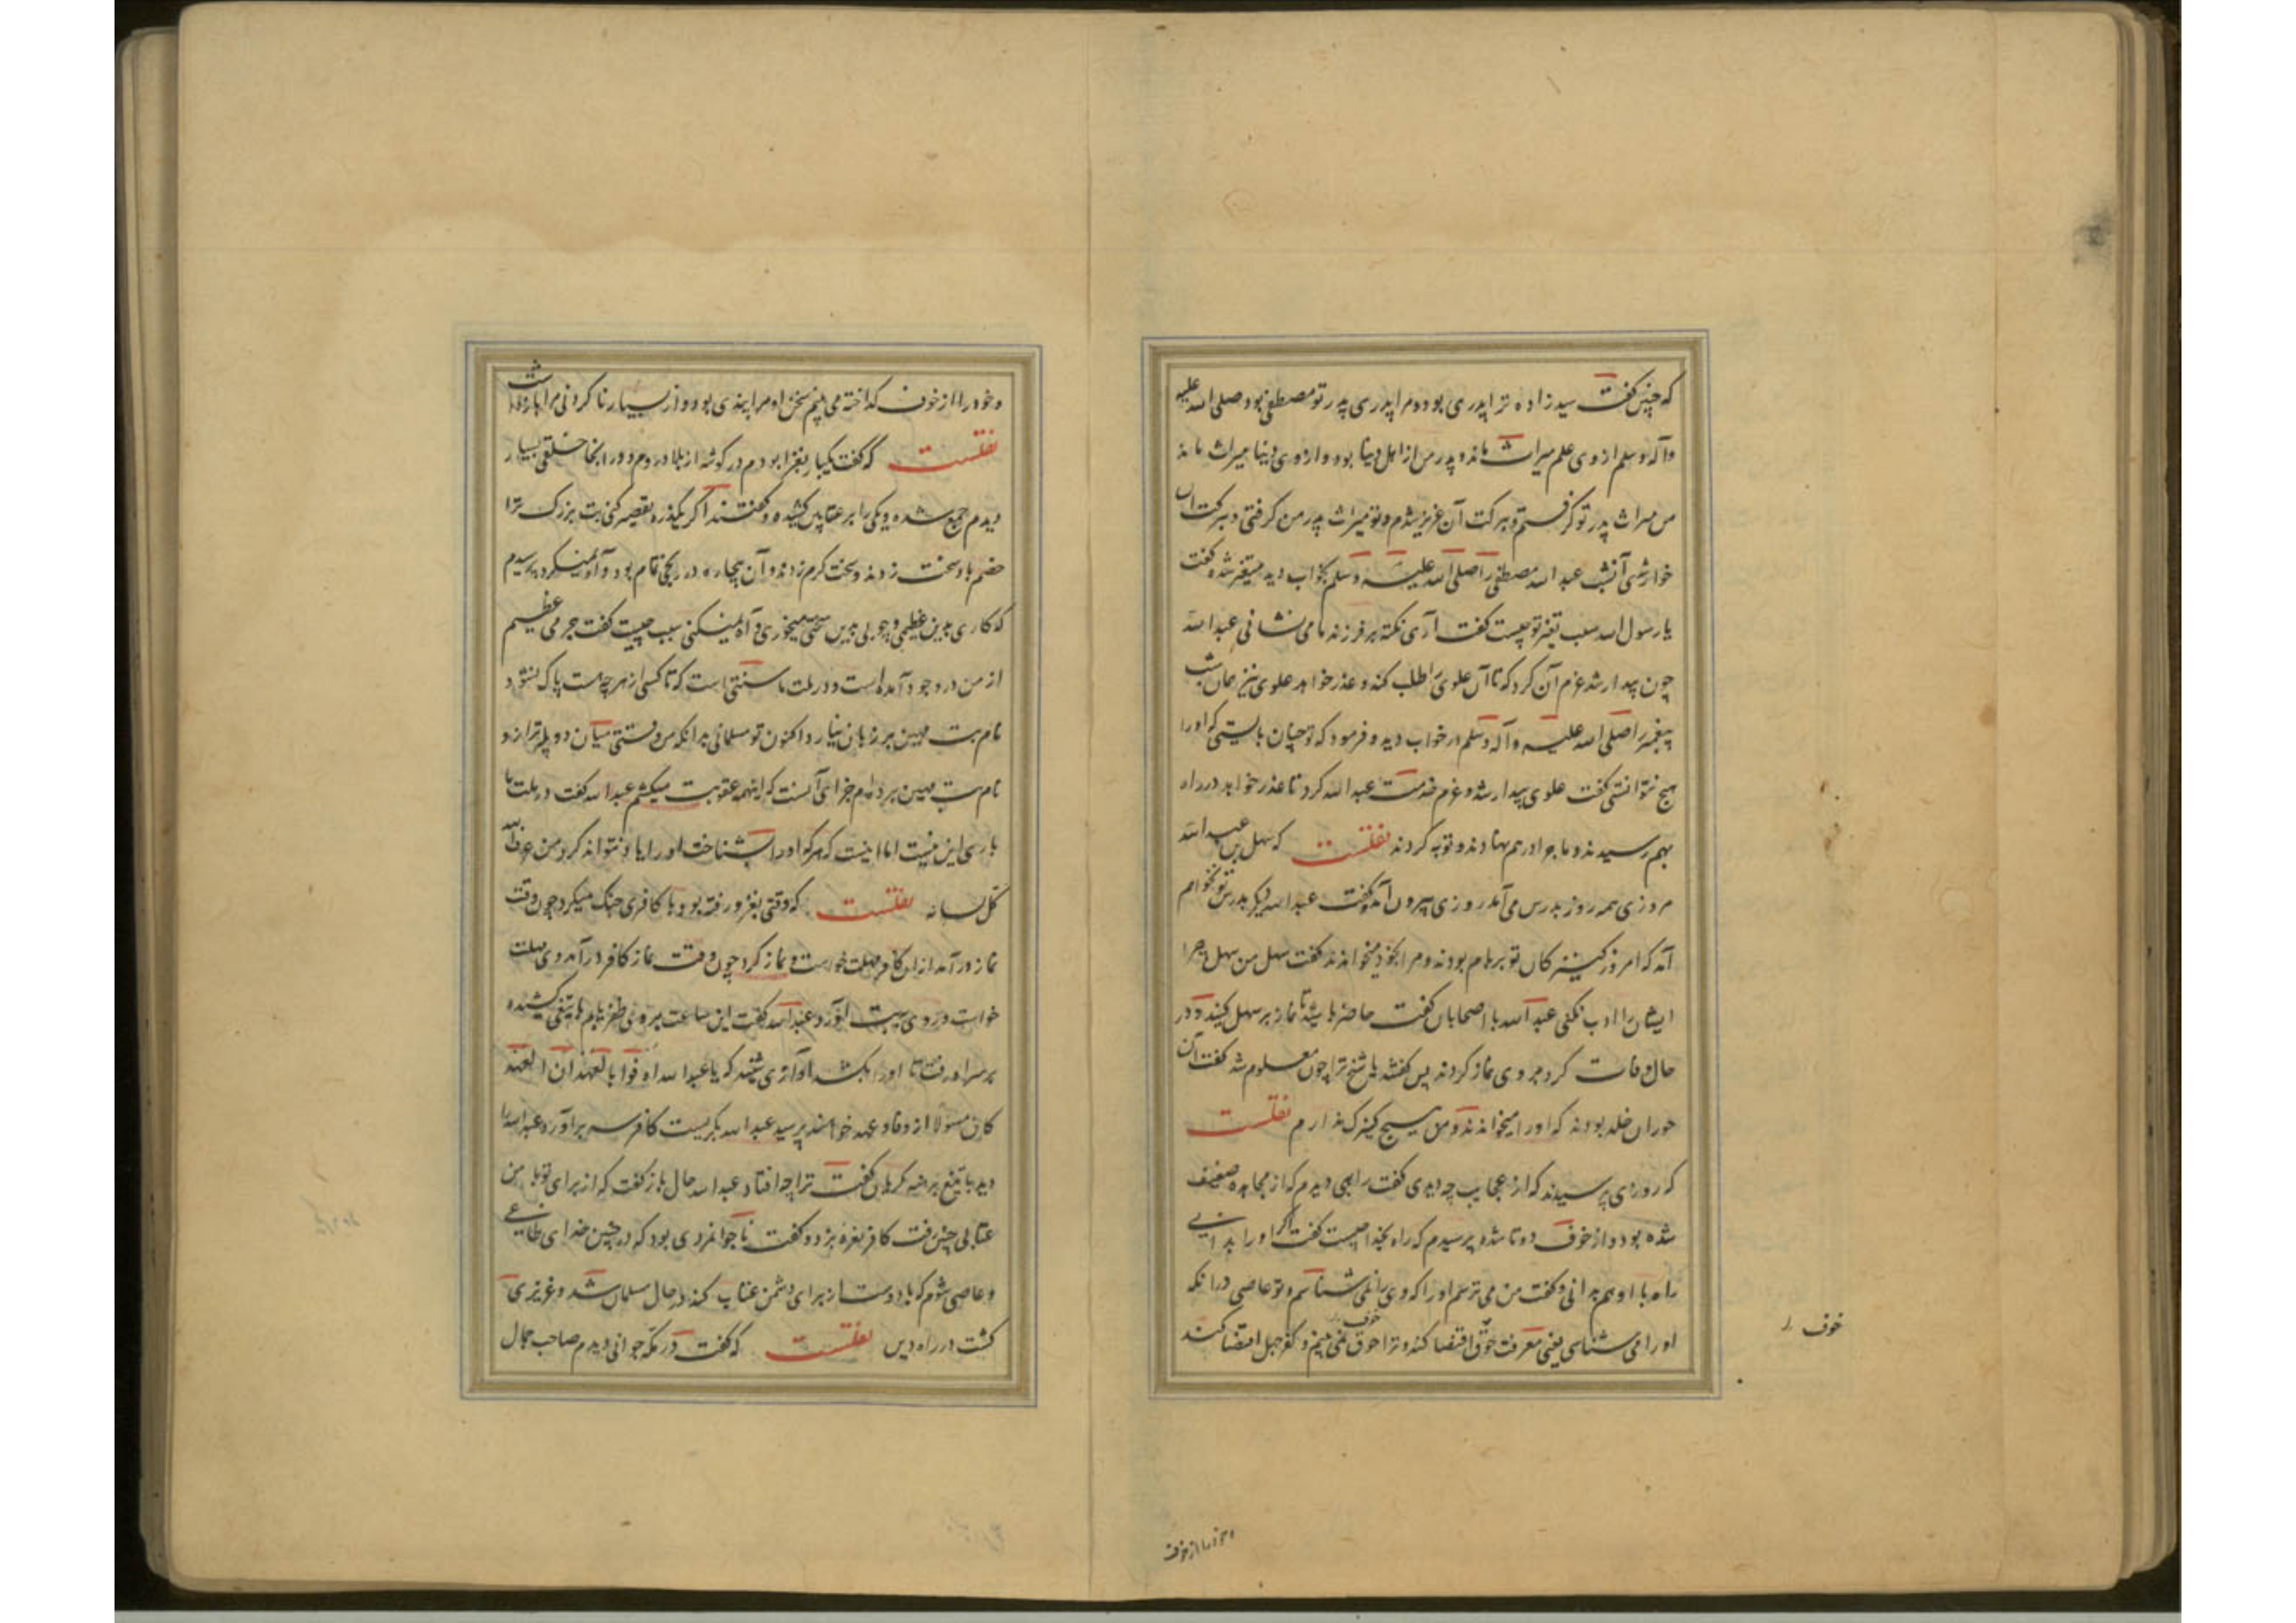 که چنین گفت سید زاده ترا پدری بود و مرا پدری پدر تو مصطفی بود صلی الله علیه
و آله و سلم از وی علم میراث ماند و پدر من از اهل دنیا بود و از وی دنیا میراث ماند
من میراث پدر تو گرفتم و ببرکت آن عزیز شدم و تو میراث پدر من گرفتی و ببرکت آن
خوار شدی آنشب عبد الله مصطفی را صلی الله علیه و سلم بخواب دید متغیر شده گفت
یا رسول الله سبب تغیر تو چیست گفت آری نکته بر فرزند ما می نشانی عبد الله
چون بیدار شد عزم آن کرد که تا آن علوی را طلب کند و عذر خواهد علوی نیز همان شب
پیغمبر را صلی الله علیه و آله و سلم در خواب دید و فرمود که تو چنان بایستی که او را
هیچ نتوانستی گفت علوی بیدار شد و عزم خدمت عبد الله کرد تا عذر خواهد در راه
بهم رسیدند و ماجرا در هم نهادند و توبه کردند نقلست که سهل بن عبد الله
مروزی همه روز بدرس می آمد روزی بیرون آمد و گفت عبد الله دیگر بدرس تو نخواهم
آمد که امروز کنیزکان تو بر بام بودند و مرا بخود میخواندند گفت سهل من سهل من چرا
ایشان را ادب نکنی عبد الله با اصحابان گفت حاضر باشید تا نماز بر سهل کنید و در
حال وفات کرد بر وی نماز کردند پس گفتند یا شیخ ترا چون معلوم شد گفت آن
حوران خلد بودند که او را میخواندند و من هیچ کنیزک ندارم نقلست
که روزی پرسیدند که از عجایب چه دیدی گفت راهبی دیدم که از مجاهده ضعیف
شده بود و از خوف دوتا شده پرسیدم که راه بخدا چیست گفت اگر او را بدانیی
راه با او هم بدانی و گفت من می ترسم او را که وی را نمی شناسم و تو عاصی در آنکه
او را می شناسی یعنی معرفت خوف اقتضا کند و ترا خوف نمی بینم و کفر جهل اقتضا کند
خوف
و خود را از خوف
و خود را از خوف گداخته می بینم سخن او مرا پندی بود و از بسیار ناکردنی مرا باز داشت
نقلست که گفت یکبار بغزا بودم در گوشه از بلاد روم و در آنجا خلقی بسیار
دیدم جمع شده و یکی را بر عقابین کشیده و گفتند اگر یکذره تقصیر کنی بت بزرگ ترا
خصم باد و سخت زنند و سخت گرم زدند و آن بیچاره در رنجی تمام بود و آه نمیکرد پرسیدم
که کاری بدین عظیمی و چوبی بدین سختی میخوری و آه نمیکنی سبب چیست گفت جرمی عظیم
از من در وجود آمده است و در ملت ما سنتی است که تا کسی از هر چه هست پاک نشود
نام بت مهین بر زبان نیارد اکنون تو مسلمانی بدانکه من وقتی میان دو پله ترازو
نام بت مهین برده ام جزای آنست که اینهمه عقوبت میکشم عبد الله گفت در ملت ما
باری این نیست اما اینست که هر که او را بشناخت او را یاد نتواند کرد من عرف الله
کل لسانه نقلست که وقتی بغزو رفته بود و با کافری جنگ میکرد چون وقت
نماز درآمد از آن کافر مهلت خواست و نماز کرد چون وقت نماز کافر درآمد وی مهلت
خواست و روی ببت آورد عبد الله گفت این ساعت بر وی ظفر یابم با تیغی کشیده
بر سر او رفت تا او را بکشد آوازی شنید که یا عبد الله اوفوا بالعهد ان العهد
کان مسئولا از وفاء عهد خواهند پرسید عبد الله بگریست کافر سر برآورد عبد الله را
دید با تیغ برهنه گریان گفت ترا چه افتاد عبد الله حال باز گفت که از برای تو با من
عتابی چنین رفت کافر نعره بزد و گفت ناجوانمردی بود که در چنین خدای طاغی
و عاصی شوم که با دوست از برای دشمن عتاب کند در حال مسلمان شد و عزیزی
گشت در راه دین نقلست که گفت در مکه جوانی دیدم صاحب جمال